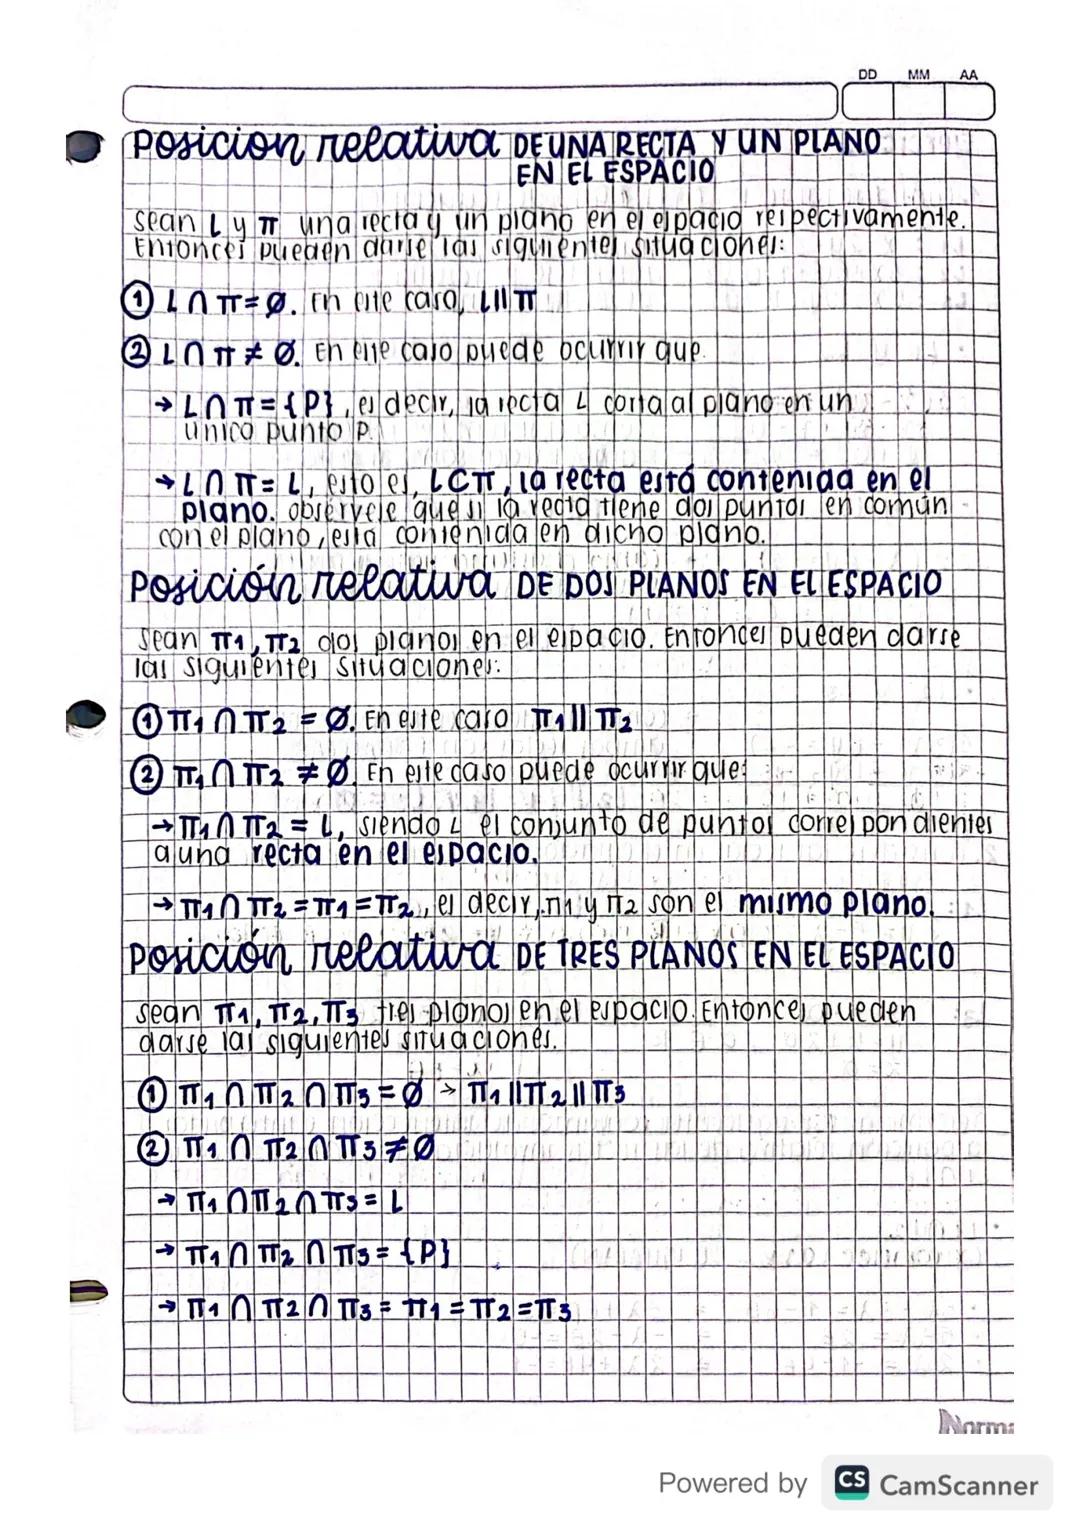 DD MM AA
Posicion relativa DE UNA RECTA Y UN PLANO
EN EL ESPACIO
Sean L y π una recta y un plano en el espacio respectivamente.
Entonces pueden darse las siguientes situaciones:
① L ∩ π = ∅. En este caso, L || π
② L ∩ π ≠ ∅. En este caso puede ocurrir que.
→ L ∩ π = {P}, es decir, la recta L corta al plano en un
unico punto P.
→ L ∩ π = L, esto es, L ⊂ π, la recta está contenida en el
plano. obsérvese que si la recta tiene dos puntos en común
con el plano, está contenida en dicho plano.
Posición relativa DE DOS PLANOS EN EL ESPACIO
Sean π1, π2 dos planos en el espacio. Entonces pueden darse
las siguientes situaciones:
① π1 ∩ π2 = ∅. En este caso π1 || π2
② π1 ∩ π2 ≠ ∅. En este caso puede ocurrir que:
→ π1 ∩ π2 = L, siendo L el conjunto de puntos correspondientes
a una recta en el espacio.
→ π1 ∩ π2 = π1 = π2, es decir, π1 y π2 son el mismo plano.
Posición relativa DE TRES PLANOS EN EL ESPACIO
Sean π1, π2, π3 tres planos en el espacio. Entonces pueden
darse las siguientes situaciones.
① π1 ∩ π2 ∩ π3 = ∅ → π1 || π2 || π3
② π1 ∩ π2 ∩ π3 ≠ ∅
→ π1 ∩ π2 ∩ π3 = L
→ π1 ∩ π2 ∩ π3 = {P}
→ π1 ∩ π2 ∩ π3 = π1 = π2 = π3
Norma
Powered by CS CamScanner